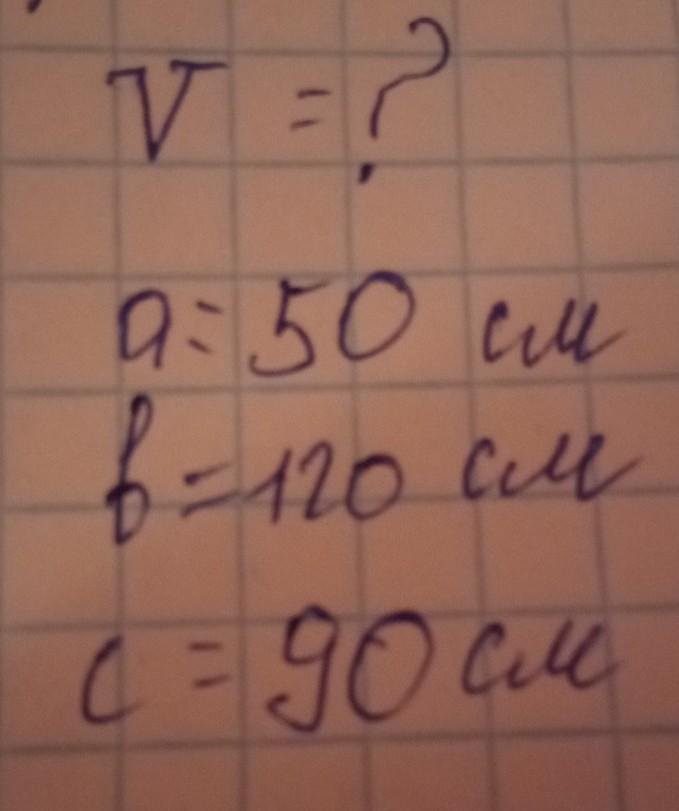 V = ?
a = 50 см
b = 120 см
c = 90 см